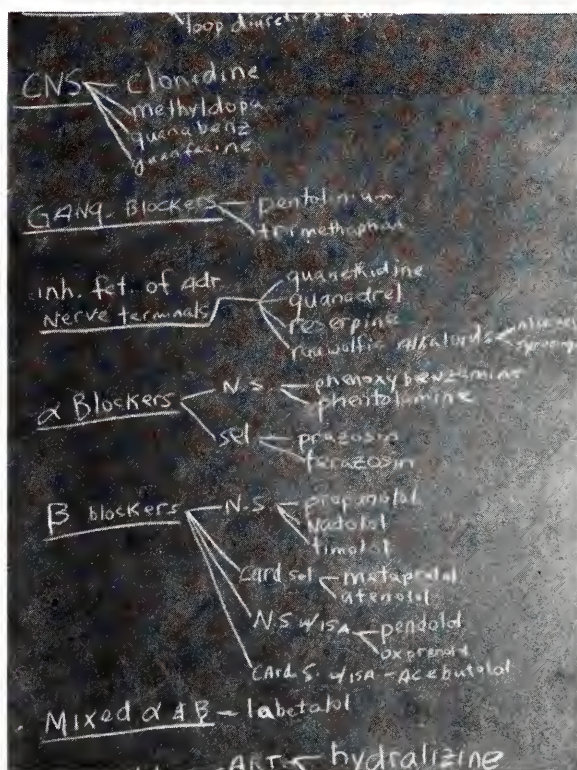 loop diuretics
CNS clonidine
methyldopa
guanabenz
guanfacine
GANg. Blockers pentolinium
trimethaphan
Inh. fct. of Adr
Nerve terminals
guanethidine
guanadrel
reserpine
rauwolfia Alkaloids
α Blockers N.S. phenoxybenzamine
phentolamine
sel prazosin
terazosin
β blockers N.S propanolol
Nadolol
timolol
Card sel metaprolol
atenolol
N.S w/ISA pendolol
oxprenolol
CArd. S. w/ISA - Acebutolol
Mixed α & β - labetalol
ART hydralizine